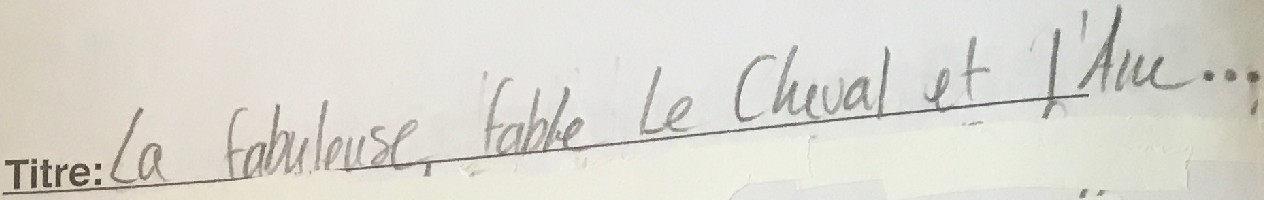 Titre: La fabuleuse, fable Le Cheval et l'Ane...